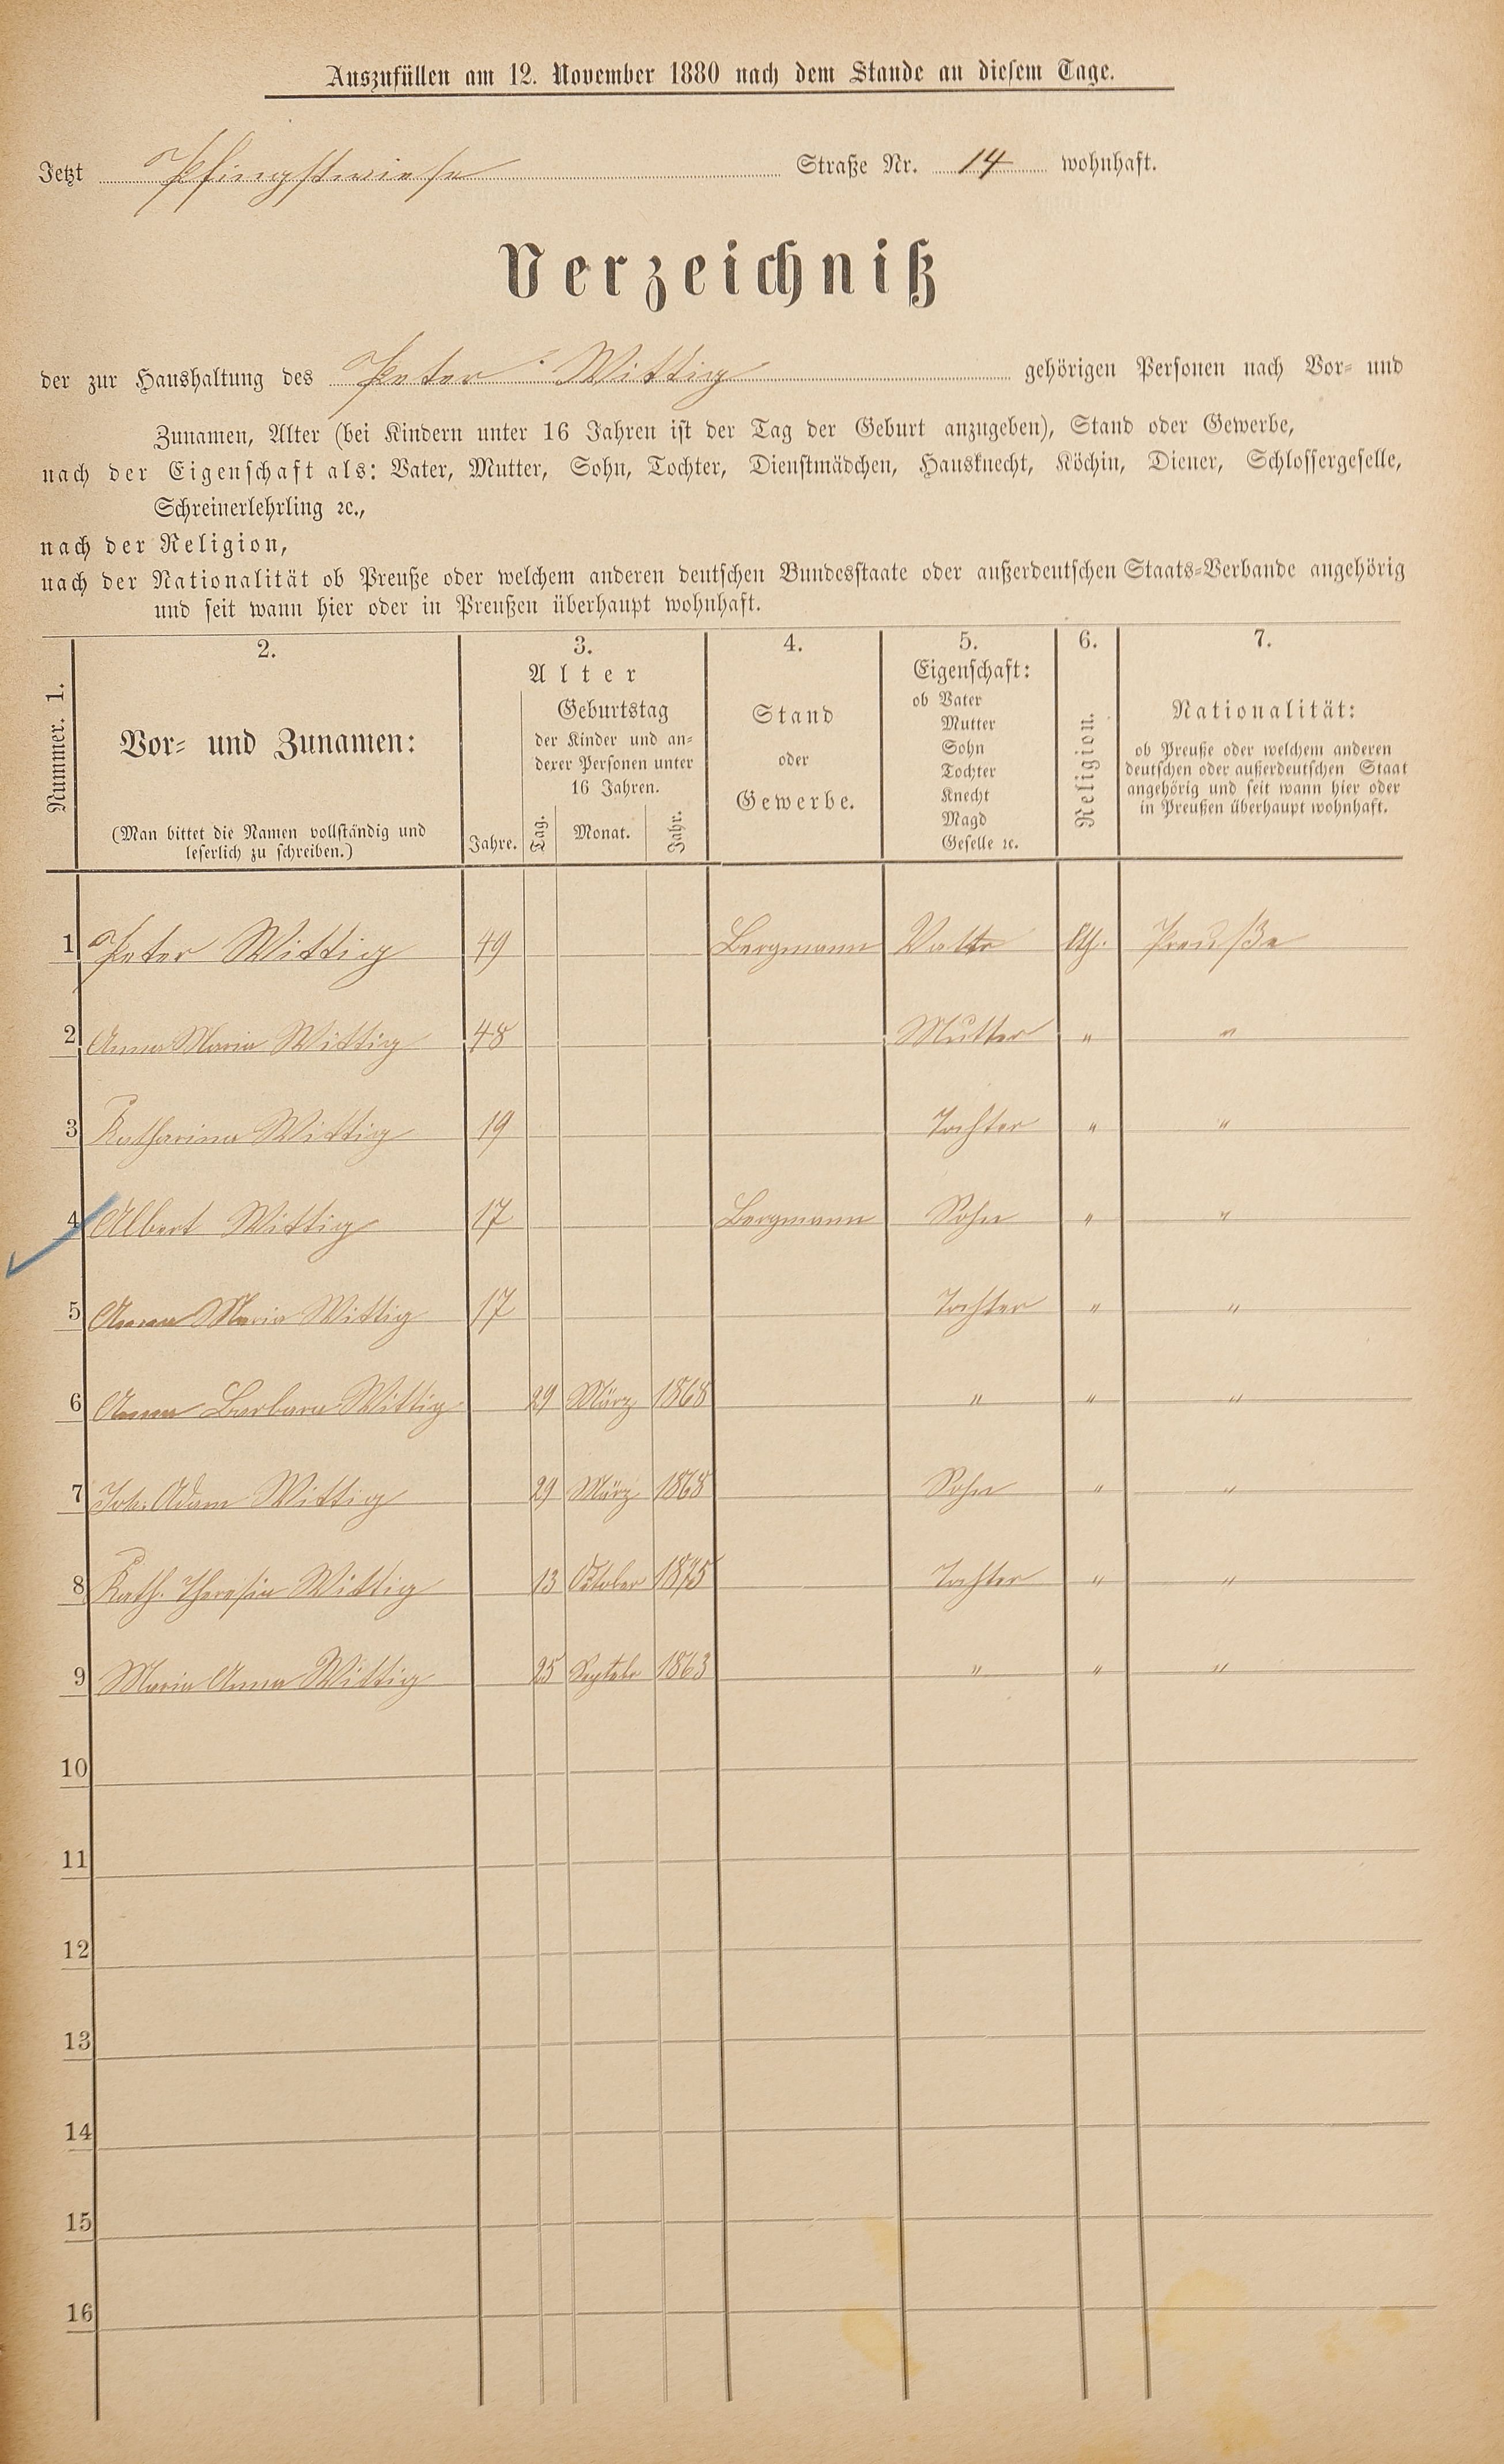 Auszufüllen am 12. November 1880 nach dem Stande an diesem Tage.
Jetzt Pfingstwiese Straße Nr. 14 wohnhaft.
Verzeichniß
der zur Haushaltung des Peter Wittig gehörigen Personen nach Vor- und
Zunamen, Alter (bei Kindern unter 16 Jahren ist der Tag der Geburt anzugeben), Stand oder Gewerbe,
nach der Eigenschaft als: Vater, Mutter, Sohn, Tochter, Dienstmädchen, Hausknecht, Köchin, Diener, Schlossergeselle,
Schreinerlehrling ꝛc.,
nach der Religion,
nach der Nationalität ob Preuße oder welchem anderen deutschen Bundesstaate oder außerdeutschen Staats-Verbande angehörig
und seit wann hier oder in Preußen überhaupt wohnhaft.
Nummer. 1.
2.
Vor- und Zunamen:
(Man bittet die Namen vollständig und
leserlich zu schreiben.)
3.
Alter
Geburtstag
der Kinder und an-
derer Personen unter
16 Jahren.
Jahre. Tag. Monat. Jahr.
4.
Stand
oder
Gewerbe.
5.
Eigenschaft:
ob Vater
Mutter
Sohn
Tochter
Knecht
Magd
Geselle ꝛc.
6.
Religion.
7.
Nationalität:
ob Preuße oder welchem anderen
deutschen oder außerdeutschen Staat
angehörig und seit wann hier oder
in Preußen überhaupt wohnhaft.
1 Peter Wittig 49 Bergmann Vater Kth. Preuße
2 Anna Maria Wittig 48 Mutter " "
3 Katharina Wittig 19 Tochter " "
4 Albert Wittig 17 Bergmann Sohn " "
5 Anna Maria Wittig 17 Tochter " "
6 Anna Barbara Wittig 29 März 1868 " " "
7 Joh. Adam Wittig 29 März 1868 Sohn " "
8 Kath. Theresia Wittig 13 October 1875 Tochter " "
9 Maria Anna Wittig 25 Septebr 1863 " " "
10
11
12
13
14
15
16